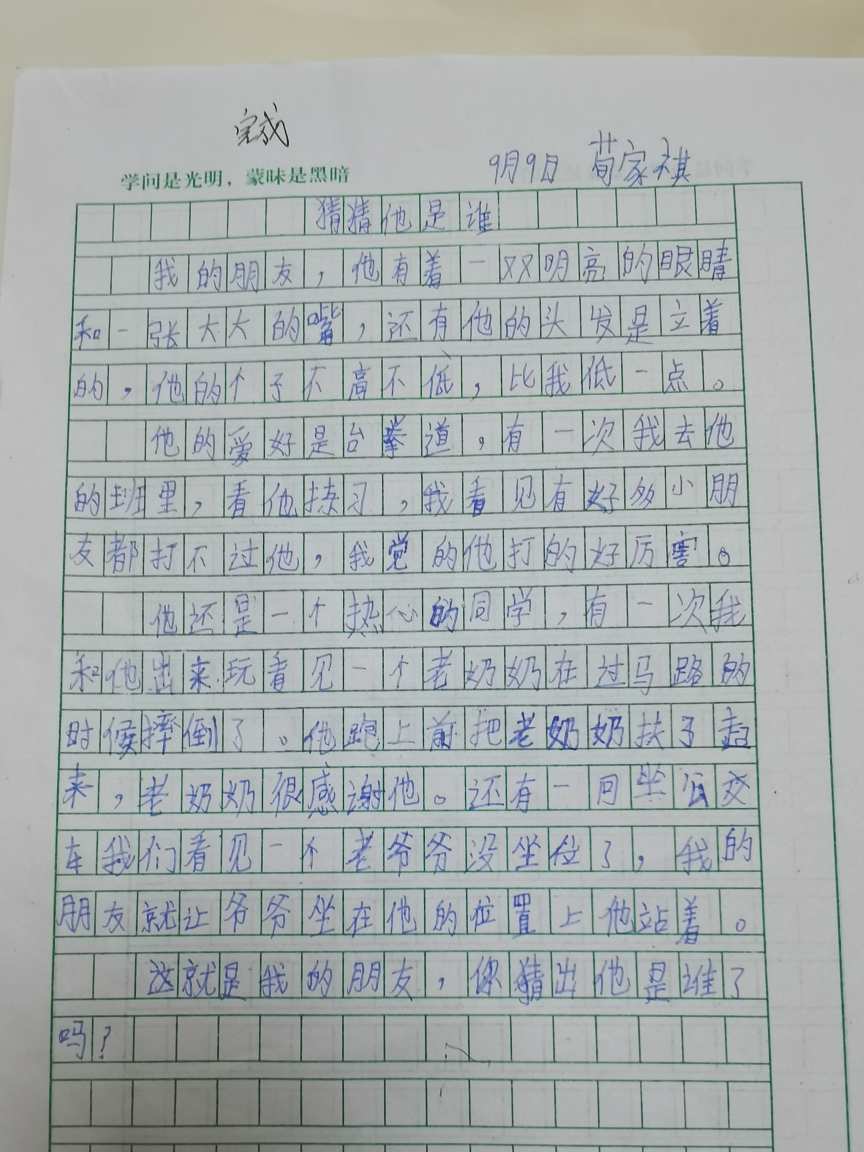 完成
9月9日 荀家祺
学问是光明，蒙昧是黑暗
猜猜他是谁
我的朋友，他有着一双明亮的眼睛
和一张大大的嘴，还有他的头发是立着
的，他的个子不高不低，比我低一点。
他的爱好是台拳道，有一次我去他
的班里，看他练习，我看见有好多小朋
友都打不过他，我觉的他打的好厉害。
他还是一个热心的同学，有一次我
和他出来玩看见一个老奶奶在过马路的
时候摔倒了。他跑上前把老奶奶扶了起
来，老奶奶很感谢他。还有一回坐公交
车我们看见一个老爷爷没坐位了，我的
朋友就让爷爷坐在他的位置上他站着。
这就是我的朋友，你猜出他是谁了
吗？